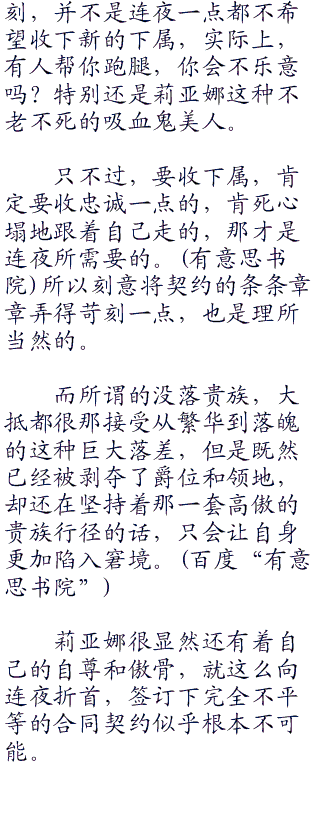 刻，并不是连夜一点都不希
望收下新的下属，实际上，
有人帮你跑腿，你会不乐意
吗？特别还是莉亚娜这种不
老不死的吸血鬼美人。
只不过，要收下属，肯
定要收忠诚一点的，肯死心
塌地跟着自己走的，那才是
连夜所需要的。(有意思书
院)所以刻意将契约的条条章
章弄得苛刻一点，也是理所
当然的。
而所谓的没落贵族，大
抵都很那接受从繁华到落魄
的这种巨大落差，但是既然
已经被剥夺了爵位和领地，
却还在坚持着那一套高傲的
贵族行径的话，只会让自身
更加陷入窘境。(百度“有意
思书院”)
莉亚娜很显然还有着自
己的自尊和傲骨，就这么向
连夜折首，签订下完全不平
等的合同契约似乎根本不可
能。